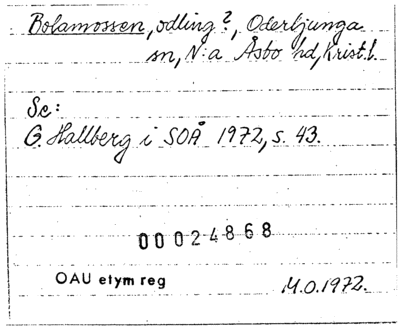 Bolamossen, odling?, Oderljunga
sn, N:a Åsbo hd, Krist. l.
Se:
G. Hallberg i SOÅ 1972, s. 43.
00024868
OAU etym reg
M.O. 1972.